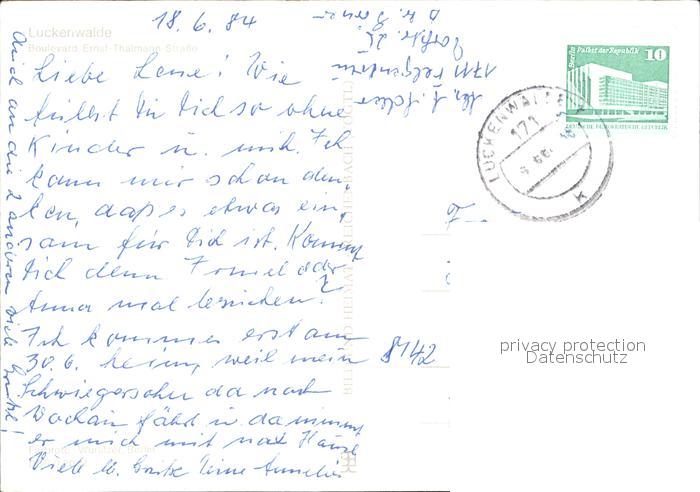 Luckenwalde
Boulevard Ernst-Thälmann-Straße
18. 6. 84
Liebe Lene! Wie
fühlst Du Dich so ohne
Kinder u. mich. Ich
kann mir schon den-
ken, daß es etwas ein-
sam für Dich ist. Kommt
Dich denn oder
Anna mal besuchen?
Ich komme erst am
30.6. heim, weil mein
Schwiegersohn da nach
fährt u. da nimmt
er mich mit nach Hause
Viele lb. Grüße Deine
Auch an die 2 anderen viele Grüße!
8142
Berlin
Palast der Republik
10
DEUTSCHE DEMOKRATISCHE REPUBLIK
LUCKENWALDE
171
privacy protection
Datenschutz